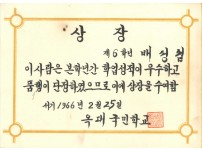 상장
제6학년 배정렬
이사람은 본학년간 학업성적이 우수하고
품행이 단정하였으므로 이에 상장을 수여함
서기 1966년 2월 25일
옥매국민학교